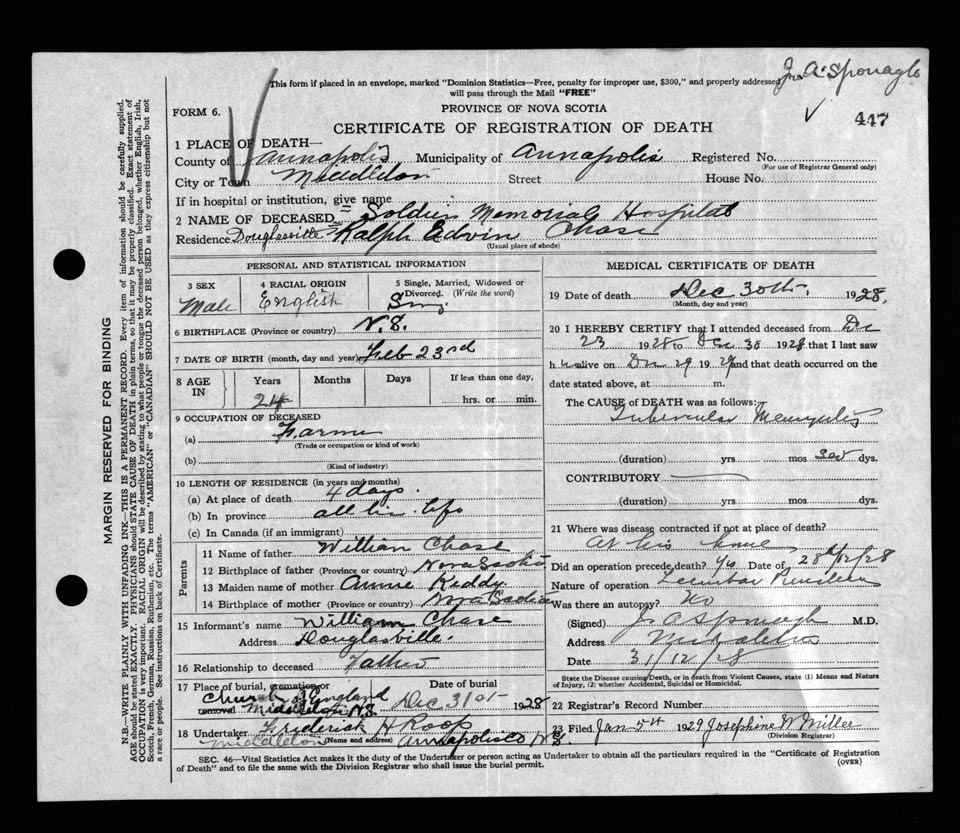 This form if placed in an envelope, marked "Dominion Statistics—Free, penalty for improper use, $300," and properly addressed, Jno A. Sponagle
will pass through the Mail "FREE"
FORM 6.
PROVINCE OF NOVA SCOTIA
447
CERTIFICATE OF REGISTRATION OF DEATH
1 PLACE OF DEATH—
County of Annapolis Municipality of Annapolis Registered No.
(For use of Registrar General only)
City or Town Middleton Street House No.
If in hospital or institution, give name
Soldiers Memorial Hospital
2 NAME OF DECEASED
Residence Douglasville Ralph Edwin Chase
(Usual place of abode)
PERSONAL AND STATISTICAL INFORMATION
3 SEX 4 RACIAL ORIGIN 5 Single, Married, Widowed or
Divorced. (Write the word)
Male English Sing
6 BIRTHPLACE (Province or country) N.S.
7 DATE OF BIRTH (month, day and year) Feb 23rd
8 AGE IN Years Months Days If less than one day,
24 hrs. or min.
9 OCCUPATION OF DECEASED
(a) Farmer
(Trade or occupation or kind of work)
(b)
(Kind of industry)
10 LENGTH OF RESIDENCE (in years and months)
(a) At place of death 4 days
(b) In province all his life
(c) In Canada (if an immigrant)
Parents
11 Name of father William Chase
12 Birthplace of father (Province or country) Nova Scotia
13 Maiden name of mother Annie Reddy
14 Birthplace of mother (Province or country) Nova Scotia
15 Informant's name William Chase
Address Douglasville.
16 Relationship to deceased Father
17 Place of burial, cremation or Date of burial
Church of England
removal Middleton N.S. Dec 31st 1928
18 Undertaker Frederick H Roop
Middleton (Name and address) Annapolis Co N.S.
MEDICAL CERTIFICATE OF DEATH
19 Date of death Dec 30th 1928.
(Month, day and year)
20 I HEREBY CERTIFY that I attended deceased from Dec
23 1928 to Dec 30 1928 that I last saw
h im alive on Dec 29 1929 and that death occurred on the
date stated above, at m.
The CAUSE of DEATH was as follows:
Tubercular Meningitis
(duration) yrs. mos. dys.
CONTRIBUTORY
(duration) yrs. mos. dys.
21 Where was disease contracted if not at place of death?
At his home
Did an operation precede death? Yes Date of 28/12/28
Nature of operation Lumbar Puncture
Was there an autopsy? No
(Signed) Jno A Sponagle M.D.
Address Middleton
Date 31/12/28
State the Disease causing Death, or in death from Violent Causes, state (1) Means and Nature
of Injury, (2) whether Accidental, Suicidal or Homicidal.
22 Registrar's Record Number
23 Filed Jan 5th 1929 Josephine W Miller
(Division Registrar)
SEC. 46—Vital Statistics Act makes it the duty of the Undertaker or person acting as Undertaker to obtain all the particulars required in the "Certificate of Registration
of Death" and to file the same with the Division Registrar who shall issue the burial permit.
(OVER)
MARGIN RESERVED FOR BINDING
N.B.—WRITE PLAINLY WITH UNFADING INK—THIS IS A PERMANENT RECORD. Every item of information should be carefully supplied.
AGE should be stated EXACTLY. PHYSICIANS should STATE CAUSE OF DEATH in plain terms, so that it may be properly classified. Exact statement of
OCCUPATION is very important. RACIAL ORIGIN will be described by stating to what people or tongue the deceased person belonged, whether English, Irish,
Scotch, French, German, Russian, Ruthenian, etc. The terms "AMERICAN" or "CANADIAN" SHOULD NOT BE USED as they express citizenship but not
a race or people. See instructions on back of Certificate.